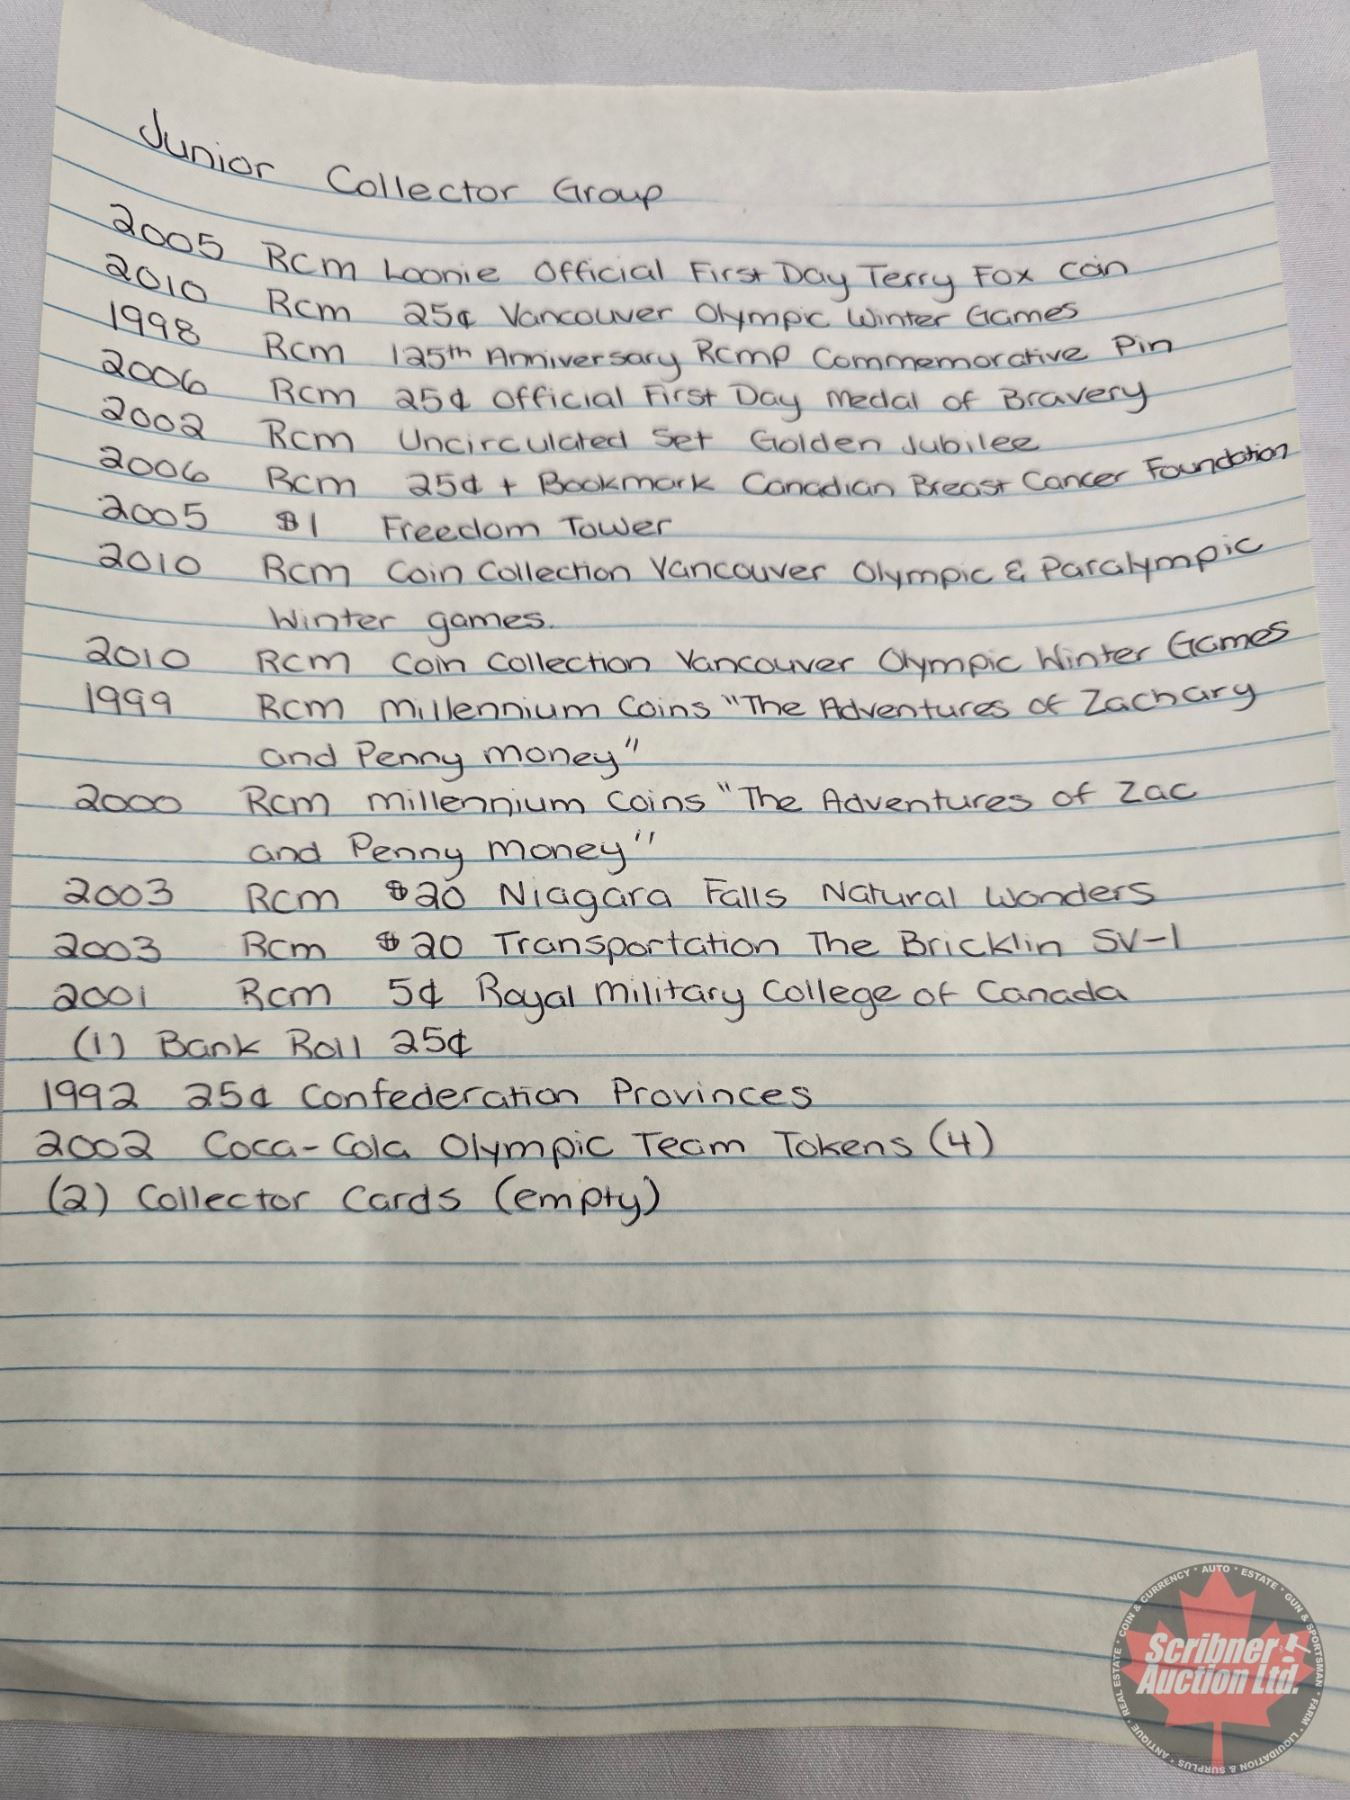 Junior Collector Group
2005 Rcm Loonie Official First Day Terry Fox coin
2010 Rcm 25¢ Vancouver Olympic Winter Games
1998 Rcm 125th Anniversary Rcmp Commemorative Pin
2006 Rcm 25¢ Official First Day Medal of Bravery
2002 Rcm Uncirculated Set Golden Jubilee
2006 Rcm 25¢ + Bookmark Canadian Breast Cancer Foundation
2005 $1 Freedom Tower
2010 Rcm Coin Collection Vancouver Olympic & Paralympic
Winter games.
2010 Rcm Coin Collection Vancouver Olympic Winter Games
1999 Rcm Millennium Coins "The Adventures of Zachary
and Penny Money"
2000 Rcm Millennium Coins "The Adventures of Zac
and Penny Money"
2003 Rcm $20 Niagara Falls Natural Wonders
2003 Rcm $20 Transportation The Bricklin SV-1
2001 Rcm 5¢ Royal Military College of Canada
(1) Bank Roll 25¢
1992 25¢ Confederation Provinces
2002 Coca-Cola Olympic Team Tokens (4)
(2) Collector Cards (empty)
Scribner
Auction Ltd.
ANTIQUE • REAL ESTATE • COIN & CURRENCY • AUTO • ESTATE • GUN & SPORTSMAN • FARM • LIQUIDATION & SURPLUS •